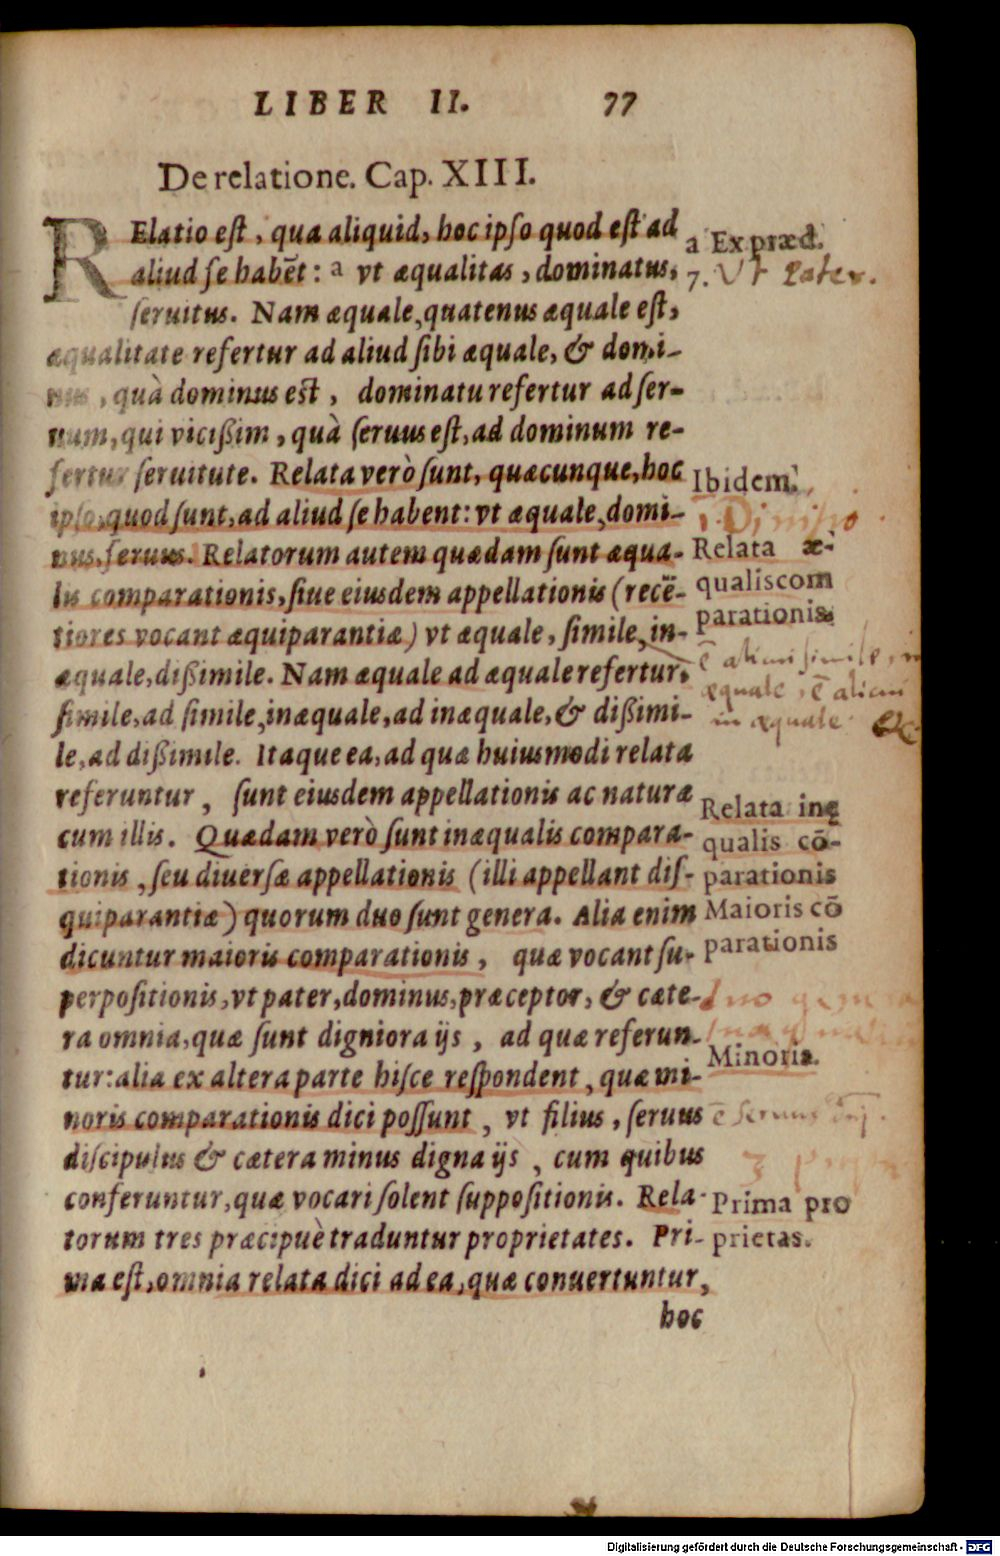 LIBER II. 77
De relatione. Cap. XIII.
RElatio est, qua aliquid, hoc ipso quod est ad
aliud se habēt: a vt æqualitas, dominatus,
seruitus. Nam æquale, quatenus æquale est,
æqualitate refertur ad aliud sibi æquale, & domi-
nus, quà dominus est, dominatu refertur ad ser-
uum, qui vicißim, quà seruus est, ad dominum re-
fertur seruitute. Relata verò sunt, quæcunque, hoc
ipso, quod sunt, ad aliud se habent: vt æquale, domi-
nus, seruus. Relatorum autem quædam sunt æqua-
lis comparationis, siue eiusdem appellationis (recē-
tiores vocant æquiparantiæ) vt æquale, simile, in-
æquale, dißimile. Nam æquale ad æquale refertur,
simile, ad simile, inæquale, ad inæquale, & dißimi-
le, ad dißimile. Itaque ea, ad quæ huiusmodi relata
referuntur, sunt eiusdem appellationis ac naturæ
cum illis. Quædam verò sunt inæqualis compara-
tionis, seu diuersæ appellationis (illi appellant dis-
quiparantiæ) quorum duo sunt genera. Alia enim
dicuntur maioris comparationis, quæ vocant su-
perpositionis, vt pater, dominus, præceptor, & cæte-
ra omnia, quæ sunt digniora ijs, ad quæ referun-
tur: alia ex altera parte hisce respondent, quæ mi-
noris comparationis dici possunt, vt filius, seruus
discipulus & cætera minus digna ijs, cum quibus
conferuntur, quæ vocari solent suppositionis. Rela-
torum tres præcipuè traduntur proprietates. Pri-
ma est, omnia relata dici ad ea, quæ conuertuntur,
hoc
a Ex præd.
7. Vt Pater.
Ibidem.
Diuisio
Relata æ-
qualis com
parationis
ē alicui simile, in
æquale, ē alicui
in æquale &c
Relata inę
qualis cō-
parationis
Maioris cō
parationis
Duo genera
Minoris.
ē seruus
3
Prima pro
prietas.
Digitalisierung gefördert durch die Deutsche Forschungsgemeinschaft - DFG